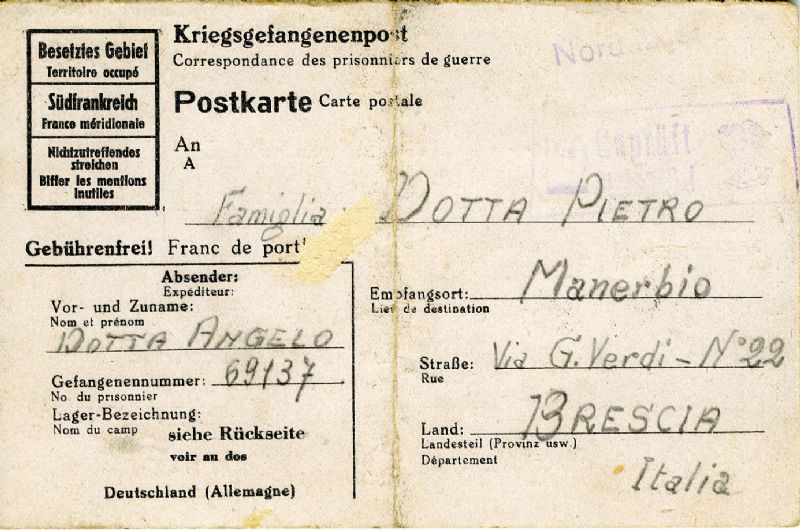 Besetztes Gebiet
Territoire occupé
Südfrankreich
France méridionale
Nichtzutreffendes
streichen
Biffer les mentions
inutiles
Kriegsgefangenenpost
Correspondance des prisonniers de guerre
Postkarte Carte postale
An
A
Geprüft
Famiglia DOTTA PIETRO
Gebührenfrei! Franc de port!
Absender:
Expéditeur:
Vor- und Zuname:
Nom et prénom
DOTTA ANGELO
Gefangenennummer: 69137
No. du prisonnier
Lager-Bezeichnung:
Nom du camp siehe Rückseite
voir au dos
Deutschland (Allemagne)
Empfangsort: Manerbio
Lieu de destination
Straße: Via G. Verdi - N° 22
Rue
Land: BRESCIA
Landesteil (Provinz usw.)
Département
Italia